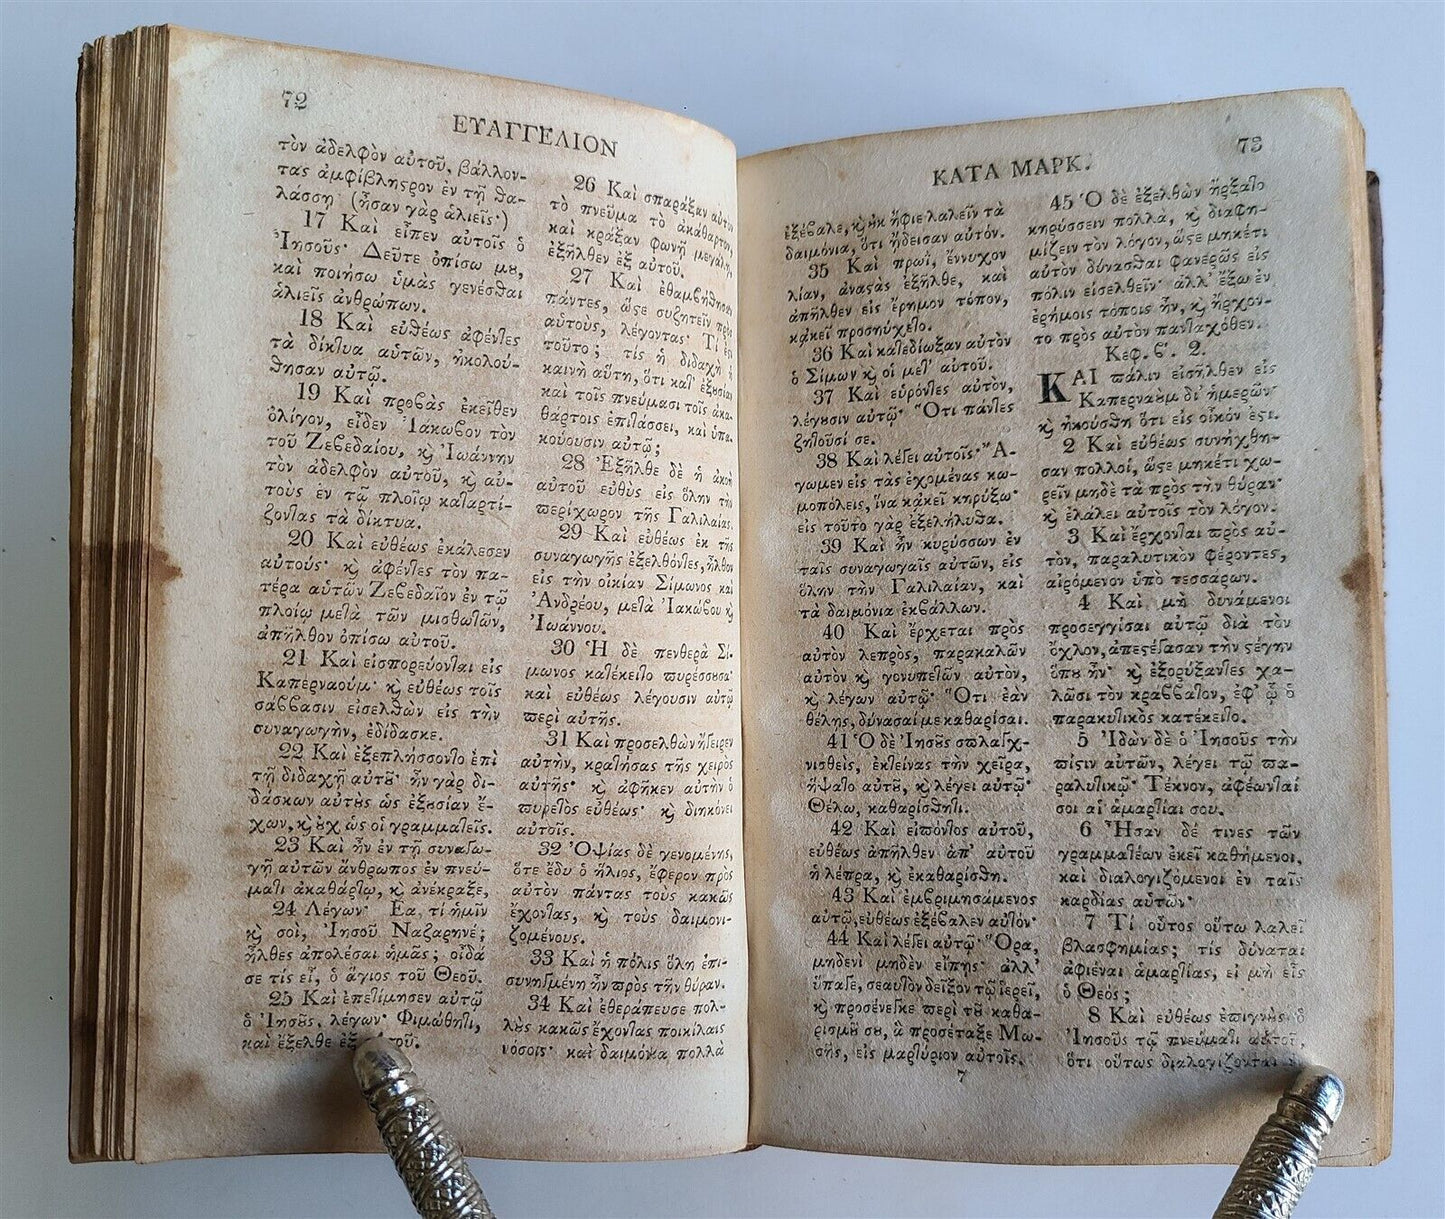 72
ΕΥΑΓΓΕΛΙΟΝ
τὸν ἀδελφὸν αὐτοῦ, βάλλον-
τας ἀμφίβληϛρον ἐν τῇ θα-
λάσσῃ (ἦσαν γὰρ ἁλιεῖς·)
17 Καὶ εἶπεν αὐτοῖς ὁ
Ἰησοῦς· Δεῦτε ὀπίσω μȣ,
καὶ ποιήσω ὑμᾶς γενέσθαι
ἁλιεῖς ἀνθρώπων.
18 Καὶ εὐθέως ἀφέντες
τὰ δίκτυα αὑτῶν, ἠκολού-
θησαν αὐτῷ.
19 Καὶ προβὰς ἐκεῖθεν
ὀλίγον, εἶδεν Ἰάκωβον τὸν
τοῦ Ζεβεδαίου, ϗ Ἰωάννην
τὸν ἀδελφὸν αὐτοῦ, ϗ αὐ-
τοὺς ἐν τῷ πλοίῳ καταρτί-
ζοντας τὰ δίκτυα.
20 Καὶ εὐθέως ἐκάλεσεν
αὐτούς· ϗ ἀφέντες τὸν πα-
τέρα αὑτῶν Ζεβεδαῖον ἐν τῷ
πλοίῳ μετὰ τῶν μισθωτῶν,
ἀπῆλθον ὀπίσω αὐτοῦ.
21 Καὶ εἰσπορεύονται εἰς
Καπερναούμ· ϗ εὐθέως τοῖς
σάββασιν εἰσελθὼν εἰς τὴν
συναγωγὴν, ἐδίδασκε.
22 Καὶ ἐξεπλήσσοντο ἐπὶ
τῇ διδαχῇ αὐτȣ· ἦν γὰρ δι-
δάσκων αὐτȣς ὡς ἐξȣσίαν ἔ-
χων, ϗ ȣχ ὡς οἱ γραμματεῖς.
23 Καὶ ἦν ἐν τῇ συναγω-
γῇ αὐτῶν ἄνθρωπος ἐν πνεύ-
ματι ἀκαθάρτῳ, ϗ ἀνέκραξε,
24 Λέγων· Ἔα, τί ἡμῖν
ϗ σοὶ, Ἰησοῦ Ναζαρηνέ;
ἦλθες ἀπολέσαι ἡμᾶς; οἶδά
σε τίς εἶ, ὁ ἅγιος τοῦ Θεοῦ.
25 Καὶ ἐπετίμησεν αὐτῷ
ὁ Ἰησȣς, λέγων· Φιμώθητι,
καὶ ἔξελθε
26 Καὶ σπαράξαν αὐτὸν
τὸ πνεῦμα τὸ ἀκάθαρτον,
καὶ κράξαν φωνῇ μεγάλῃ,
ἐξῆλθεν ἐξ αὐτοῦ.
27 Καὶ ἐθαμβήθησαν
πάντες, ὥϛε συζητεῖν πρὸς
αὑτοὺς, λέγοντας· Τί ἐϛι
τοῦτο; τίς ἡ διδαχὴ ἡ
καινὴ αὕτη, ὅτι κατ' ἐξουσίαν
καὶ τοῖς πνεύμασι τοῖς ἀκα-
θάρτοις ἐπιτάσσει, καὶ ὑπα-
κούουσιν αὐτῷ;
28 Ἐξῆλθε δὲ ἡ ἀκοὴ
αὐτοῦ εὐθὺς εἰς ὅλην τὴν
περίχωρον τῆς Γαλιλαίας.
29 Καὶ εὐθέως ἐκ τῆς
συναγωγῆς ἐξελθόντες, ἦλθον
εἰς τὴν οἰκίαν Σίμωνος καὶ
Ἀνδρέου, μετὰ Ἰακώβου ϗ
Ἰωάννου.
30 Ἡ δὲ πενθερὰ Σί-
μωνος κατέκειτο πυρέσσουσα·
καὶ εὐθέως λέγουσιν αὐτῷ
περὶ αὐτῆς.
31 Καὶ προσελθὼν ἤγειρεν
αὐτὴν, κρατήσας τῆς χειρὸς
αὐτῆς· ϗ ἀφῆκεν αὐτὴν ὁ
πυρετὸς εὐθέως· ϗ διηκόνει
αὐτοῖς.
32 Ὀψίας δὲ γενομένης,
ὅτε ἔδυ ὁ ἥλιος, ἔφερον πρὸς
αὐτὸν πάντας τοὺς κακῶς
ἔχοντας, ϗ τοὺς δαιμονι-
ζομένους.
33 Καὶ ἡ πόλις ὅλη ἐπι-
συνηγμένη ἦν πρὸς τὴν θύραν.
34 Καὶ ἐθεράπευσε πολ-
λȣς κακῶς ἔχοντας ποικίλαις
νόσοις· καὶ δαιμόνια πολλὰ
73
ΚΑΤΑ ΜΑΡΚ.
ἐξέβαλε, ϗ ȣκ ἤφιε λαλεῖν τὰ
δαιμόνια, ὅτι ᾔδεισαν αὐτόν.
35 Καὶ πρωῒ, ἔννυχον
λίαν, ἀναϛὰς ἐξῆλθε, καὶ
ἀπῆλθεν εἰς ἔρημον τόπον,
κἀκεῖ προσηύχετο.
36 Καὶ κατεδίωξαν αὐτὸν
ὁ Σίμων ϗ οἱ μετ' αὐτοῦ.
37 Καὶ εὑρόντες αὐτὸν,
λέγȣσιν αὐτῷ· Ὅτι πάντες
ζητοῦσί σε.
38 Καὶ λέγει αὐτοῖς· Ἄ-
γωμεν εἰς τὰς ἐχομένας κω-
μοπόλεις, ἵνα κἀκεῖ κηρύξω·
εἰς τοῦτο γὰρ ἐξελήλυθα.
39 Καὶ ἦν κυρύσσων ἐν
ταῖς συναγωγαῖς αὐτῶν, εἰς
ὅλην τὴν Γαλιλαίαν, καὶ
τὰ δαιμόνια ἐκβάλλων.
40 Καὶ ἔρχεται πρὸς
αὐτὸν λεπρὸς, παρακαλῶν
αὐτὸν ϗ γονυπετῶν αὐτὸν,
ϗ λέγων αὐτῷ· Ὅτι ἐὰν
θέλῃς, δύνασαί με καθαρίσαι.
41 Ὁ δὲ Ἰησȣς σπλαγχ-
νισθεὶς, ἐκτείνας τὴν χεῖρα,
ἥψατο αὐτȣ, ϗ λέγει αὐτῷ·
Θέλω, καθαρίσθητι.
42 Καὶ εἰπόντος αὐτοῦ,
εὐθέως ἀπῆλθεν ἀπ' αὐτοῦ
ἡ λέπρα, ϗ ἐκαθαρίσθη.
43 Καὶ ἐμβριμησάμενος
αὐτῷ, εὐθέως ἐξέβαλεν αὐτόν·
44 Καὶ λέγει αὐτῷ· Ὅρα,
μηδενὶ μηδὲν εἴπῃς· ἀλλ'
ὕπαγε, σεαυτὸν δεῖξον τῷ ἱερεῖ,
ϗ προσένεγκε περὶ τȣ καθα-
ρισμȣ σȣ, ἃ προσέταξε Μω-
σῆς, εἰς μαρτύριον αὐτοῖς.
7
45 Ὁ δὲ ἐξελθὼν ἤρξατο
κηρύσσειν πολλὰ, ϗ διαφη-
μίζειν τὸν λόγον, ὥϛε μηκέτι
αὐτὸν δύνασθαι φανερῶς εἰς
πόλιν εἰσελθεῖν· ἀλλ' ἔξω ἐν
ἐρήμοις τόποις ἦν, ϗ ἤρχον-
το πρὸς αὐτὸν πανταχόθεν.
Κεφ. ϐ'. 2.
ΚΑΙ πάλιν εἰσῆλθεν εἰς
Καπερναȣμ δι' ἡμερῶν·
ϗ ἠκούσθη ὅτι εἰς οἶκόν ἐϛι.
2 Καὶ εὐθέως συνήχθη-
σαν πολλοὶ, ὥϛε μηκέτι χω-
ρεῖν μηδὲ τὰ πρὸς τὴν θύραν·
ϗ ἐλάλει αὐτοῖς τὸν λόγον.
3 Καὶ ἔρχονται πρὸς αὐ-
τὸν, παραλυτικὸν φέροντες,
αἰρόμενον ὑπὸ τεσσάρων.
4 Καὶ μὴ δυνάμενοι
προσεγγίσαι αὐτῷ διὰ τὸν
ὄχλον, ἀπεϛέγασαν τὴν ϛέγην
ὅπȣ ἦν· ϗ ἐξορύξαντες χα-
λῶσι τὸν κράββατον, ἐφ' ᾧ ὁ
παρακυτικὸς κατέκειτο.
5 Ἰδὼν δὲ ὁ Ἰησοῦς τὴν
πίϛιν αὐτῶν, λέγει τῷ πα-
ραλυτικῷ· Τέκνον, ἀφέωνταί
σοι αἱ ἁμαρτίαι σου.
6 Ἦσαν δέ τινες τῶν
γραμματέων ἐκεῖ καθήμενοι,
καὶ διαλογιζόμενοι ἐν ταῖς
καρδίαις αὑτῶν·
7 Τί οὗτος οὕτω λαλεῖ
βλασφημίας; τίς δύναται
ἀφιέναι ἁμαρτίας, εἰ μὴ εἷς
ὁ Θεός;
8 Καὶ εὐθέως ἐπιγνȣς ὁ
Ἰησοῦς τῷ πνεύματι αὑτοῦ,
ὅτι οὕτως διαλογίζονται